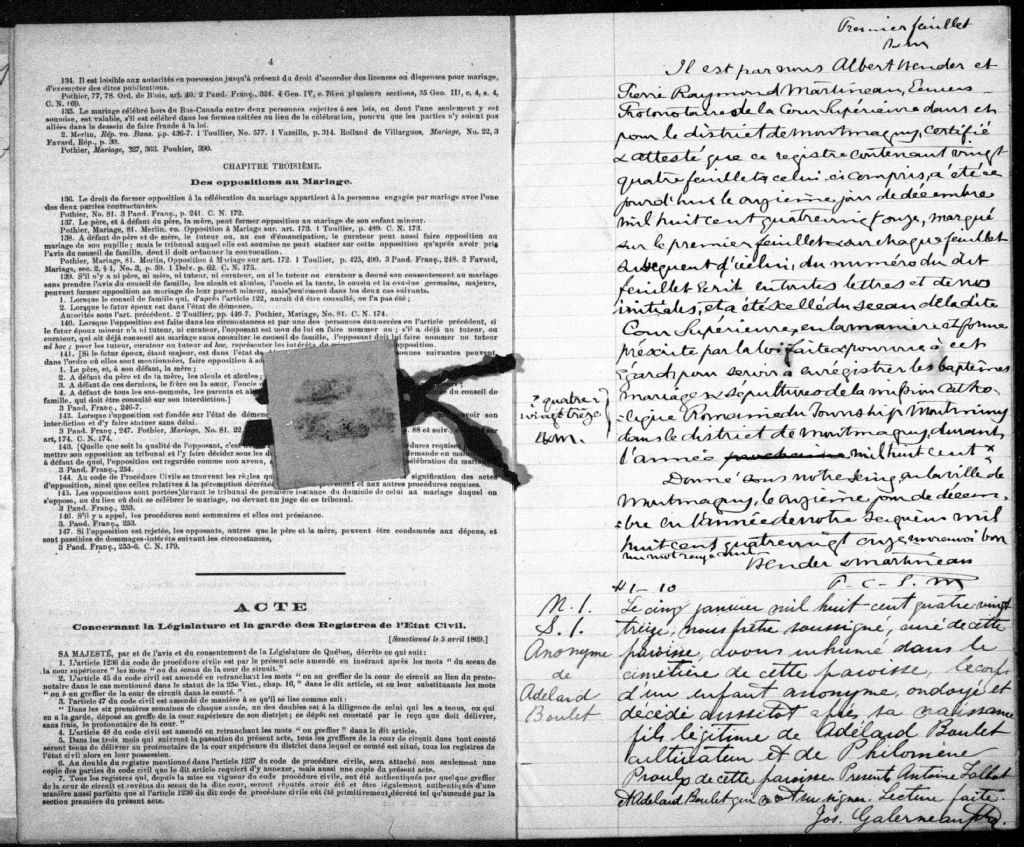 4
134. Il est loisible aux autorités en possession jusqu'à présent du droit d'accorder des licences ou dispenses pour mariage,
d'exempter des dites publications.
Pothier, 77, 78. Ord. de Blois, art. 40. 2 Pand. Franç., 324. 4 Geo. IV, c. 76 en plusieurs sections, 35 Geo. III, c. 4, s. 4,
C. N. 169.
135. Le mariage célébré hors du Bas-Canada entre deux personnes sujettes à ses lois, ou dont l'une seulement y est
soumise, est valable, s'il est célébré dans les formes usitées au lieu de la célébration, pourvu que les parties n'y soient pas
allées dans le dessein de faire fraude à la loi.
2. Merlin, Rép. vo. Bans. pp. 436-7. 1 Toullier, No. 577. 1 Vazeille, p. 314. Rolland de Villargues, Mariage, No. 22, 3
Favard. Rép., p. 30.
Pothier, Mariage, 327, 363. Pouhier, 390.
CHAPITRE TROISIÈME.
Des oppositions au Mariage.
136. Le droit de former opposition à la célébration du mariage appartient à la personne engagée par mariage avec l'une
des deux parties contractantes.
Pothier, No. 81. 3 Pand. Franç., p. 241. C. N. 172.
137. Le père, et à défaut du père, la mère, peut former opposition au mariage de son enfant mineur.
Pothier, Mariage, 81. Merlin, vo. Opposition à Mariage sur. art. 173. 1 Toullier, p. 489. C. N. 173.
138. A défaut de père et de mère, le tuteur ou, au cas d'émancipation, le curateur peut aussi faire opposition au
mariage de son pupille; mais le tribunal auquel elle est soumise ne peut statuer sur cette opposition qu'après avoir pris
l'avis du conseil de famille, dont il doit ordonner la convocation.
Pothier, Mariage, 81. Merlin, Opposition à Mariage sur art. 172. 1 Toullier, p. 425, 490. 3 Pand. Franç., 248. 2 Favard,
Mariage, sec. 2, § 1, No. 3, p. 59. 1 Delv. p. 62. C. N. 175.
139. S'il n'y a ni père, ni mère, ni tuteur, ni curateur, ou si le tuteur ou curateur a donné son consentement au mariage
sans prendre l'avis du conseil de famille, les aïeuls et aïeules, l'oncle et la tante, le cousin et la cousine germains, majeurs,
peuvent former opposition au mariage de leur parent mineur, mais seulement dans les deux cas suivants.
1. Lorsque le conseil de famille qui, d'après l'article 122, aurait dû être consulté, ne l'a pas été;
2. Lorsque le futur époux est dans l'état de démence.
Autorités sous l'art. précédent. 2 Toullier, pp. 446-7. Pothier, Mariage, No. 81. C. N. 174.
140. Lorsque l'opposition est faite dans les circonstances et par une des personnes énumérées en l'article précédent, si
le futur époux mineur n'a ni tuteur, ni curateur, l'opposant est tenu de lui en faire nommer un; s'il a déjà un tuteur, ou
curateur, qui ait déjà consenti au mariage sans consulter le conseil de famille, l'opposant doit lui faire nommer un tuteur
ad hoc; pour les tuteur, curateur ou tuteur ad hoc, représenter les intérêts de
141. [Si le futur époux, étant majeur, est dans l'état de nes suivantes peuvent,
dans l'ordre où elles sont mentionnées, faire opposition à
1. Le père, et, à son défaut, la mère;
2. A défaut du père et de la mère, les aïeuls et aïeules;
3. A défaut de ces derniers, le frère ou la sœur, l'oncle
4. A défaut de tous les sus-nommés, les parents et du conseil de
famille, qui doit être consulté sur son interdiction.]
3 Pand. Franç., 246-7.
142. Lorsque l'opposition est fondée sur l'état de démence voir son
interdiction et d'y faire statuer sans délai.
3 Pand. Franç., 247. Pothier, Mariage, No. 81. 22 88 et suiv. sur
art, 174. C. N. 174.
143. [Quelle que soit la qualité de l'opposant, c'est requises
mettre son opposition au tribunal et l'y faire décider sous les demande en
à défaut de quoi, l'opposition est regardée comme non avenue, célébration du mariage
3 Pand. Franç., 254.
144. Au code de Procédure Civile se trouvent les règles signification des actes
d'opposition, ainsi que celles relatives à la péremption et aux autres procédures requises.
145. Les oppositions sont portées devant le tribunal de première instance du domicile de celui au mariage duquel on
s'oppose, ou du lieu où doit se célébrer le mariage, ou devant un juge de ce tribunal.
3. Pand. Franç., 253.
146. S'il y a appel, les procédures sont sommaires et elles ont préséance.
3. Pand. Franç., 253.
147. Si l'opposition est rejetée, les opposants, autres que le père et la mère, peuvent être condamnés aux dépens, et
sont passibles de dommages-intérêts suivant les circonstances,
3 Pand. Franç., 255-6. C. N. 179.
ACTE
Concernant la Législature et la garde des Registres de l'Etat Civil.
[Sanctionné le 5 avril 1869.]
SA MAJESTÉ, par et de l'avis et du consentement de la Législature de Québec, décrète ce qui suit:
1. L'article 1236 du code de procédure civile est par le présent acte amendé en insérant après les mots "du sceau de
la cour supérieure" les mots "ou du sceau de la cour de circuit."
2. L'article 45 du code civil est amendé en retranchant les mots "ou au greffier de la cour de circuit au lieu du proto-
notaire dans le cas mentionné dans le statut de la 25e Vict., chap. 16," dans le dit article, et en leur substituants les mots
"ou à un greffier de la cour de circuit dans le comté."
3. l'article 47 du code civil est amendé de manière à ce qu'il se lise comme suit:
"Dans les six premières semaines de chaque année, un des doubles est à la diligence de celui qui les a tenus, ou qui
en a la garde, déposé au greffe de la cour supérieure de son district; ce dépôt est constaté par le reçu que doit délivrer,
sans frais, le protonotaire de la cour."
4. L'article 48 du code civil est amendé en retranchant les mots "ou greffier" dans le dit article.
5. Dans les trois mois qui suivront la passation du présent acte, tous les greffiers de la cour de circuit dans tout comté
seront tenus de délivrer au protonotaire de la cour supérieure du district dans lequel ce comté est situé, tous les registres de
l'état civil alors en leur possession.
6. Au double du registre mentionné dans l'article 1237 du code de procédure civile, sera attaché non seulement une
copie des parties du code civil que le dit article requiert d'y annexer, mais aussi une copie du présent acte.
7. Tous les registres qui, depuis la mise en vigueur du code procédure civile, ont été authentiqués par quelque greffier
de la cour de circuit et revêtus du sceau de la dite cour, seront réputés avoir été et être légalement authentiqués d'une
manière aussi parfaite que si l'article 1236 du dit code de procédure civile eût été primitivement décrété tel qu'amendé par la
section première du présent acte.
Premier feuillet
B M
Il est par nous Albert Bender et
Pierre Raymond Martineau, Ecuiers
Protonotaires de la Cour Supérieure dans et
pour le district de Montmagny, certifié
& attesté que ce registre contenant vingt
quatre feuillets, celui-ci compris, a été ce
jourd'hui le onzième jour de décembre
mil huit cent quatre vingt onze, marqué
sur le premier feuillet & sur chaque feuillet
subséquent d'icelui, du numéro du dit
feuillet écrit en toutes lettres et de nos
initiales, et a été scellé du sceau de la dite
Cour Supérieure, en la manière et forme
préscrite par la loi faite & pourvue à cet
égard, pour servir à enregistrer les baptêmes
mariages & sépultures de la mission catho-
lique Romaine du Township Montminy
dans le district de Montmagny, durant
l'année prochaine mil huit cent x
quatre
vingt treize
B.M.
Donné sous notre seing en la ville de
Montmagny, le onzième jour de décem-
bre en l'année de notre Seigneur mil
huit cent quatre vingt onze
Bender & Martineau
P. C. S. M
#1-10
N. 1.
S. 1.
Anonyme
de
Adelard
Boulet
Le cinq janvier mil huit cent quatre-vingt
treize, nous prêtre soussigné, curé de cette
paroisse, avons inhumé dans le
cimetière de cette paroisse le corps
d'un enfant anonyme, ondoyé et
décédé aussitot après sa naissance
fils légitime de Adélard Boulet
cultivateur et de Philomène
Proulx de cette paroisse. Présents Antoine Talbot
et Adelard Boulet qui n'ont su signer. Lecture faite.
Jos. Galerneau Ptre.